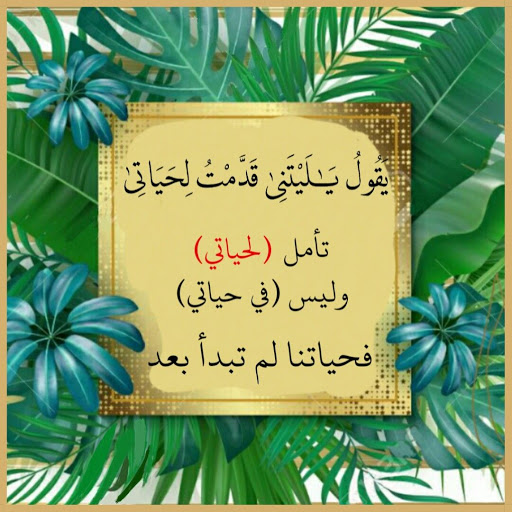 يَقُولُ يَـٰلَيْتَنِى قَدَّمْتُ لِحَيَاتِى
تأمل (لحياتي)
وليس (في حياتي)
فحياتنا لم تبدأ بعد